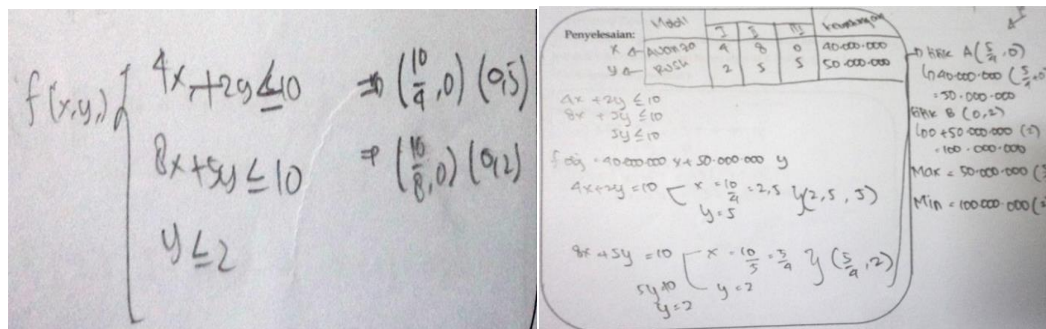 f(x,y)
4x+2y≤10 ⇒ (10/4,0) (0,5)
8x+5y≤10 ⇒ (10/8,0) (0,2)
y≤2
Penyelesaian:
Mobil I II III Keuntungan
x AVANZA 4 8 0 40.000.000
y RUSH 2 5 5 50.000.000
4x+2y≤10
8x+5y≤10
5y≤10
f obj = 40.000.000 x + 50.000.000 y
4x+2y=10
x = 10/4 = 2,5
y=5
(2,5,5)
8x+5y=10
x = 10/5 = 5/4
y=2
(5/4,2)
5y=10
y=2
A (5/4,0)
40.000.000 (5/4
=50.000.000
B (0,2)
+50.000.000 (2)
=100.000.000
Max = 50.000.000
Min = 100.000.000